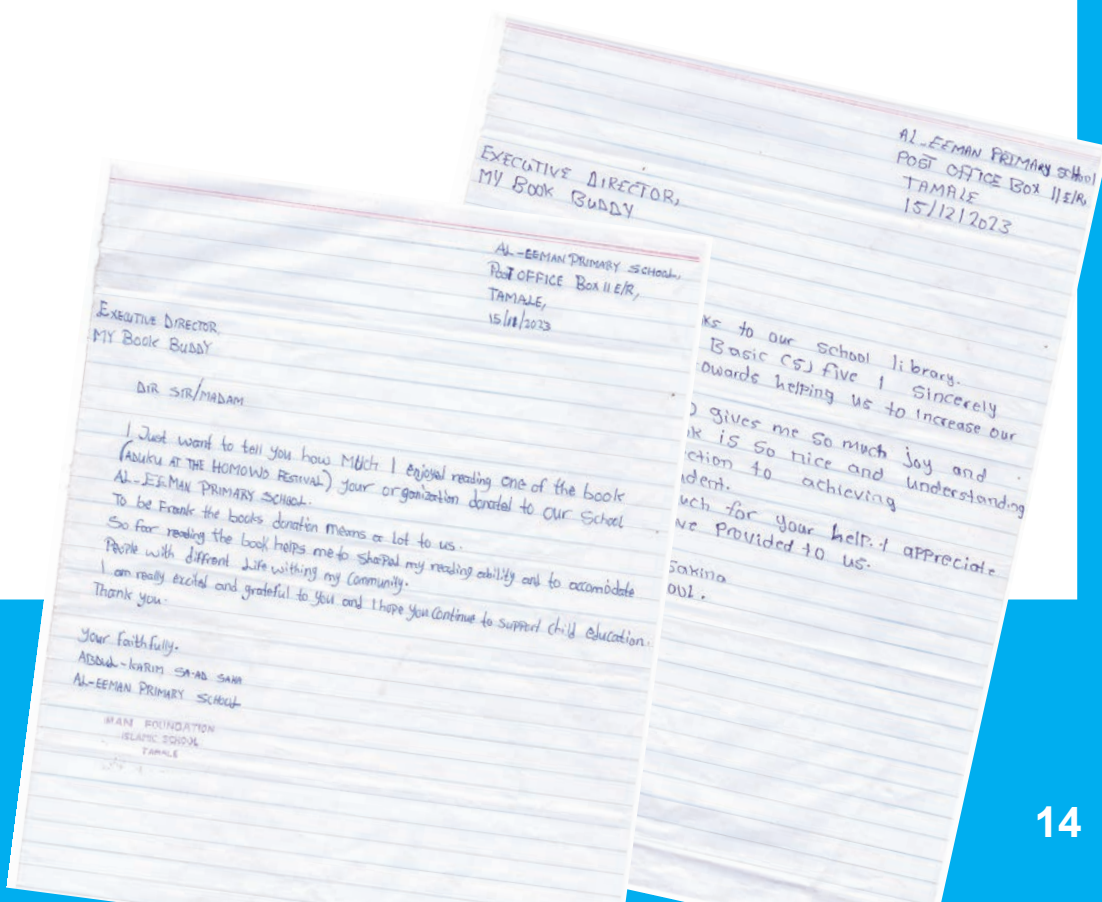 AL-EEMAN PRIMARY SCHOOL,
POST OFFICE BOX 11 E/R,
TAMALE,
15/12/2023
EXECUTIVE DIRECTOR,
MY BOOK BUDDY
DIR SIR/MADAM
I Just want to tell you how Much I enjoyed reading one of the book
(ADUKU AT THE HOMOWO FESTIVAL) your organization donated to our School
AL-EEMAN PRIMARY SCHOOL.
To be Frank the books donation means a Lot to us.
So far reading the book helps me to sharped my reading ability and to accomodate
People with diffrent Life withing my Community.
I am really excited and grateful to you and I hope you Continue to support child education.
Thank you.
your faithfully.
ABDUL-KARIM SA-AD SAHA
AL-EEMAN PRIMARY SCHOOL
IMAM FOUNDATION
ISLAMIC SCHOOL
TAMALE
AL-EEMAN PRIMARY School
POST OFFICE BOX 11 E/R,
TAMALE
15/12/2023
EXECUTIVE DIRECTOR,
MY BOOK BUDDY
ks to our school library.
Basic (5) five I Sincerely
owards helping us to increase our
gives me so much joy and
k is so nice and understanding
ction to achieving
dent.
uch for your help. I appreciate
ve provided to us.
Sakina
OOL.
14